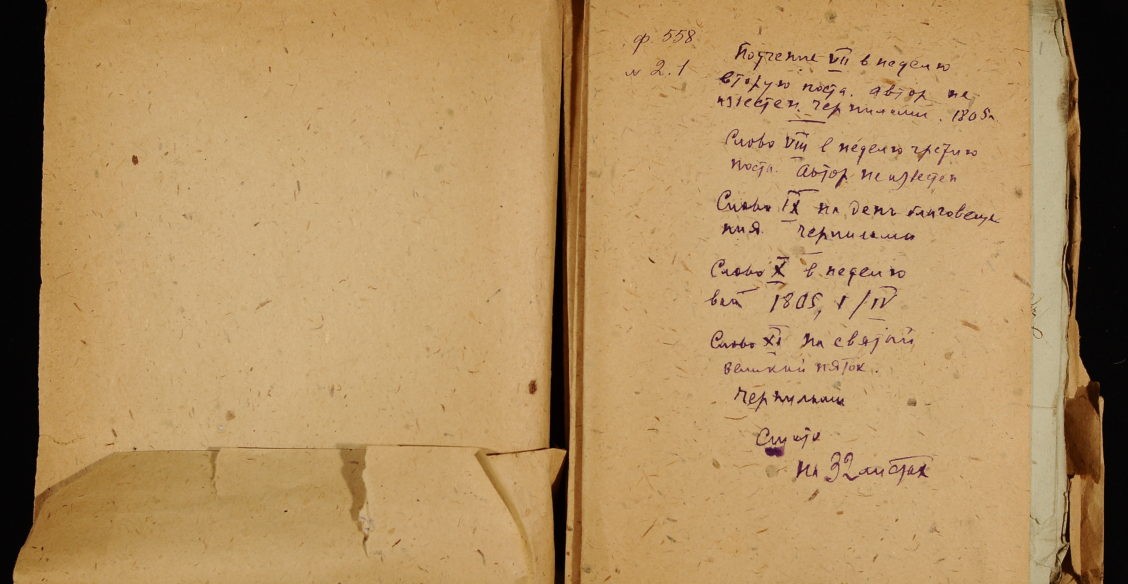 ф 558
м 2.1
Поучение VII в неделю
вторую поста. Автор не
известен. Чернилами. 1805г
Слово VIII в неделю третию
поста. Автор неизвестен
Слово IX на день благовеще
ния. Чернилами
Слово X в неделю
ваи 1805, I/IV
Слово XI на святый
великий пяток.
Чернилами
на 32 листах